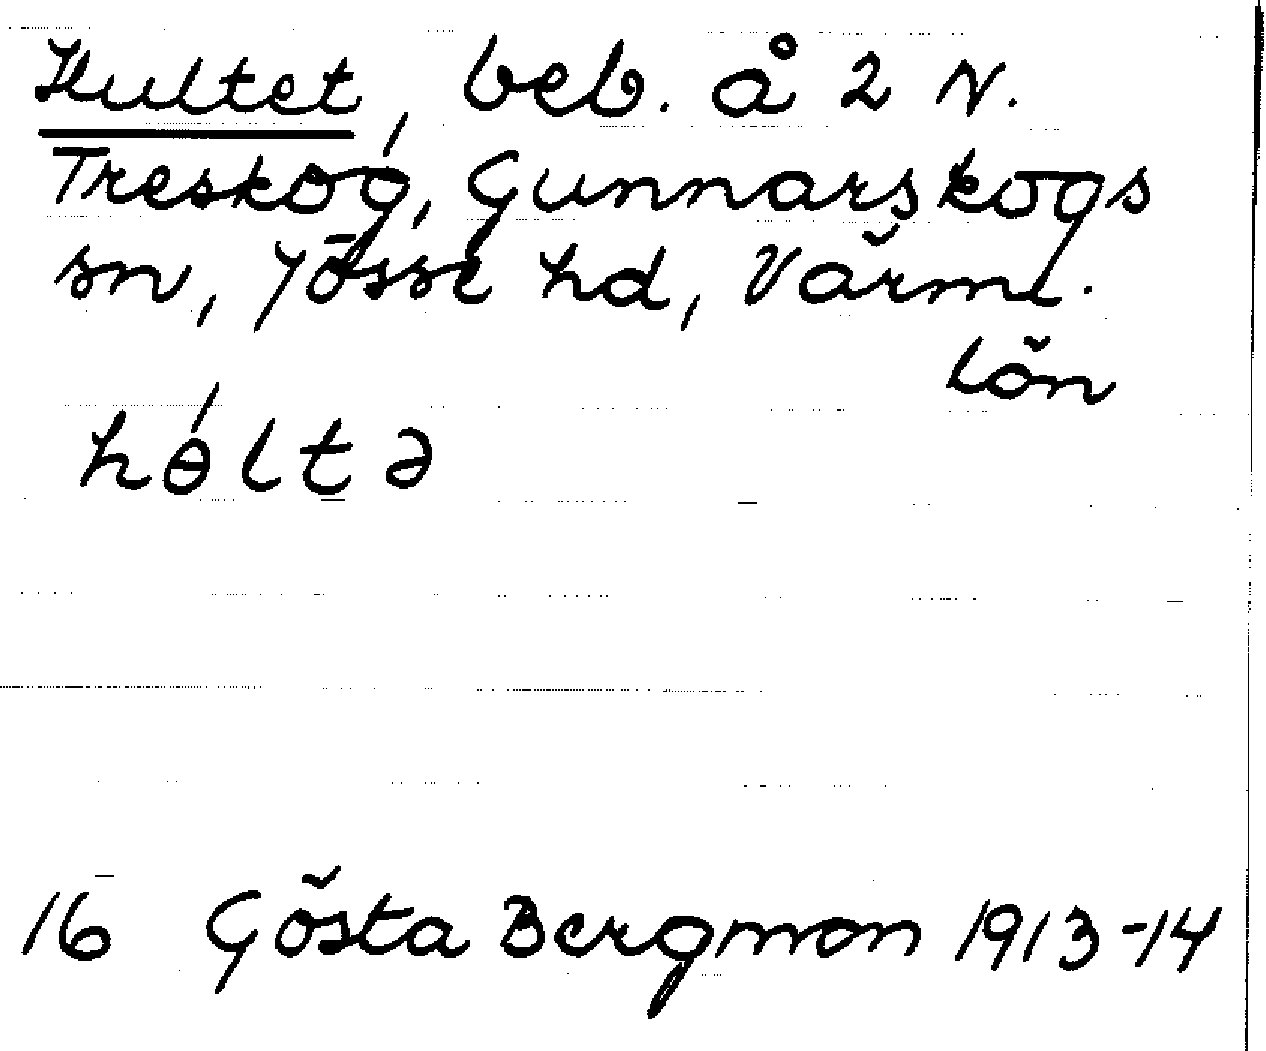 Hultet, beb. å 2 N.
Treskog, Gunnarskogs
sn, Jösse hd, Värml.
län
hɵ́ltə
16 Gösta Bergman 1913-14